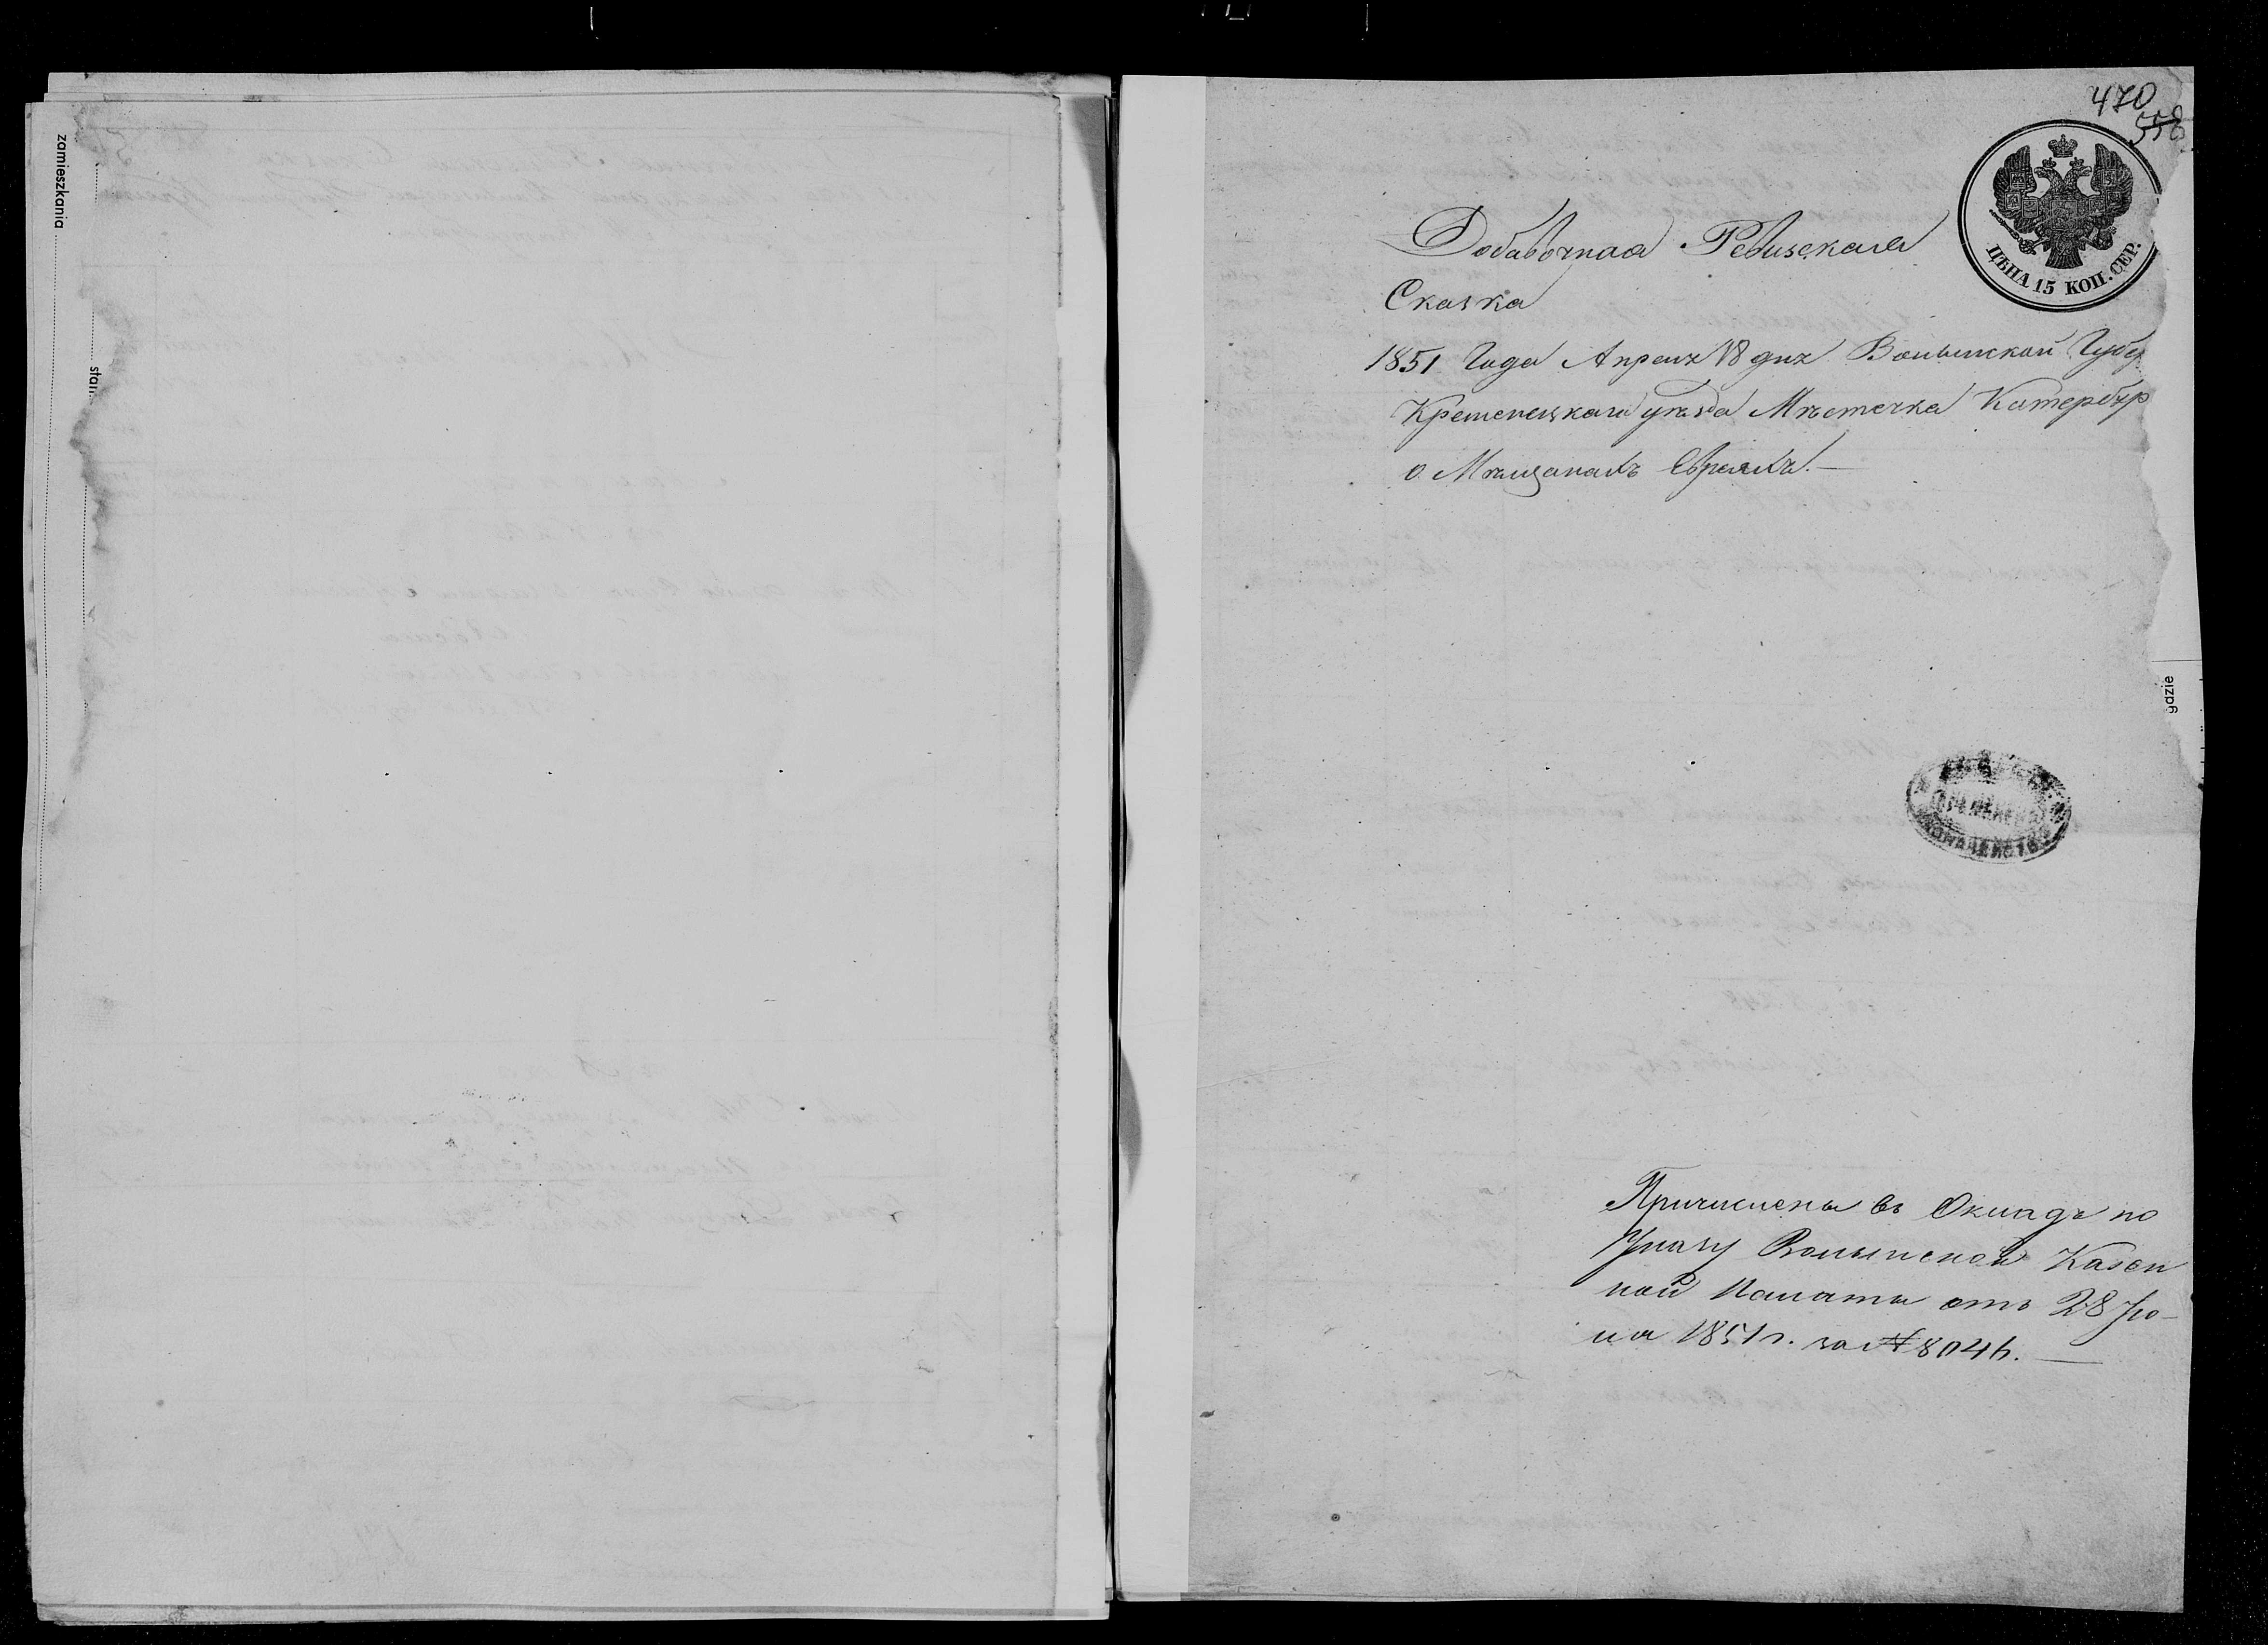 zamieszkania
stan
470
558
ЦѢНА 15 КОП. СЕР.
Добавочная Ревизская
Сказка
1851 Года Апреля 18 дня Волынской Губер
Кременецкаго уѣзда Мѣстечка Катербур
о Мѣщанахъ Евреяхъ. —
gdzie
Причислены въ Окладъ по
Указу Волынской Казен
ной Палаты отъ 28 Ію-
ня 1851 г. за № 8046. —